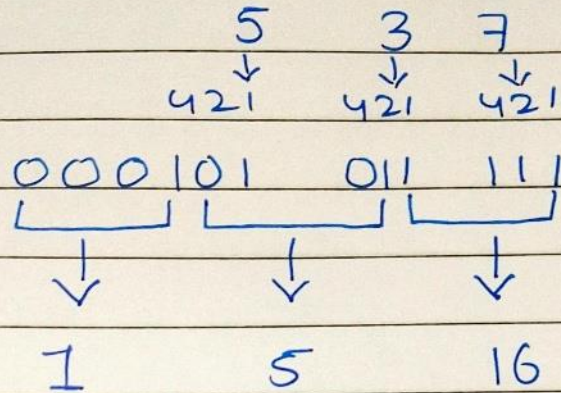 5 3 7
421 421 421
000101 011 111
1 5 16